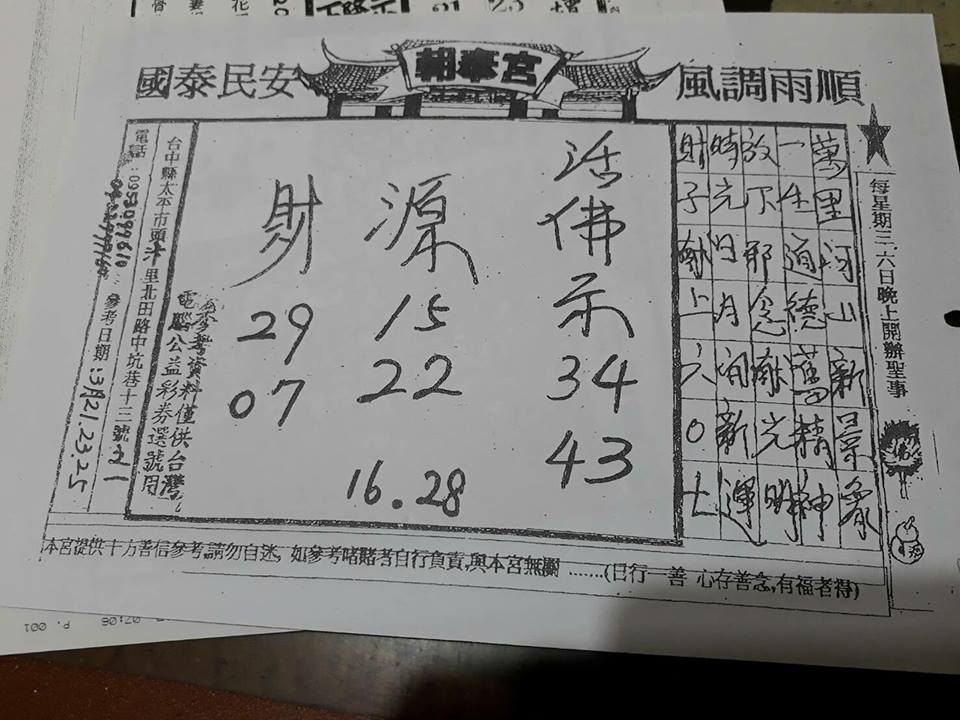 國泰民安
朝泰宮
風調雨順
每星期三.六日晚上開辦聖事
萬里河山新景象
一生道德舊精神
放下邪念獻光明
時元日月新運
財子獻上六0
活佛示
34
43
源
15
22
16.28
財
29
07
參考資料僅供台灣
電腦公益彩券選號用
台中縣太平市頭汴里北田路中坑巷十三號之一
電話:
參考日期:3月21.23.25
本宮提供十方善信參考,請勿自迷,如參考賭賭者自行負責,與本宮無關.......(日行一善 心存善念,有福者得)
P.001